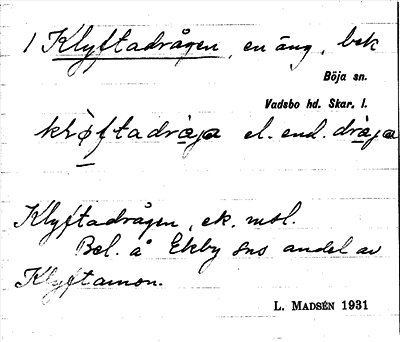 1 Klyftadrågen, en äng, bek
Böja sn.
Vadsbo hd. Skar. l.
el. end.
Klyftadrågen, ek. msl.
Bel. å Ekby sns andel av
Klyftamon.
L. MADSÉN 1931